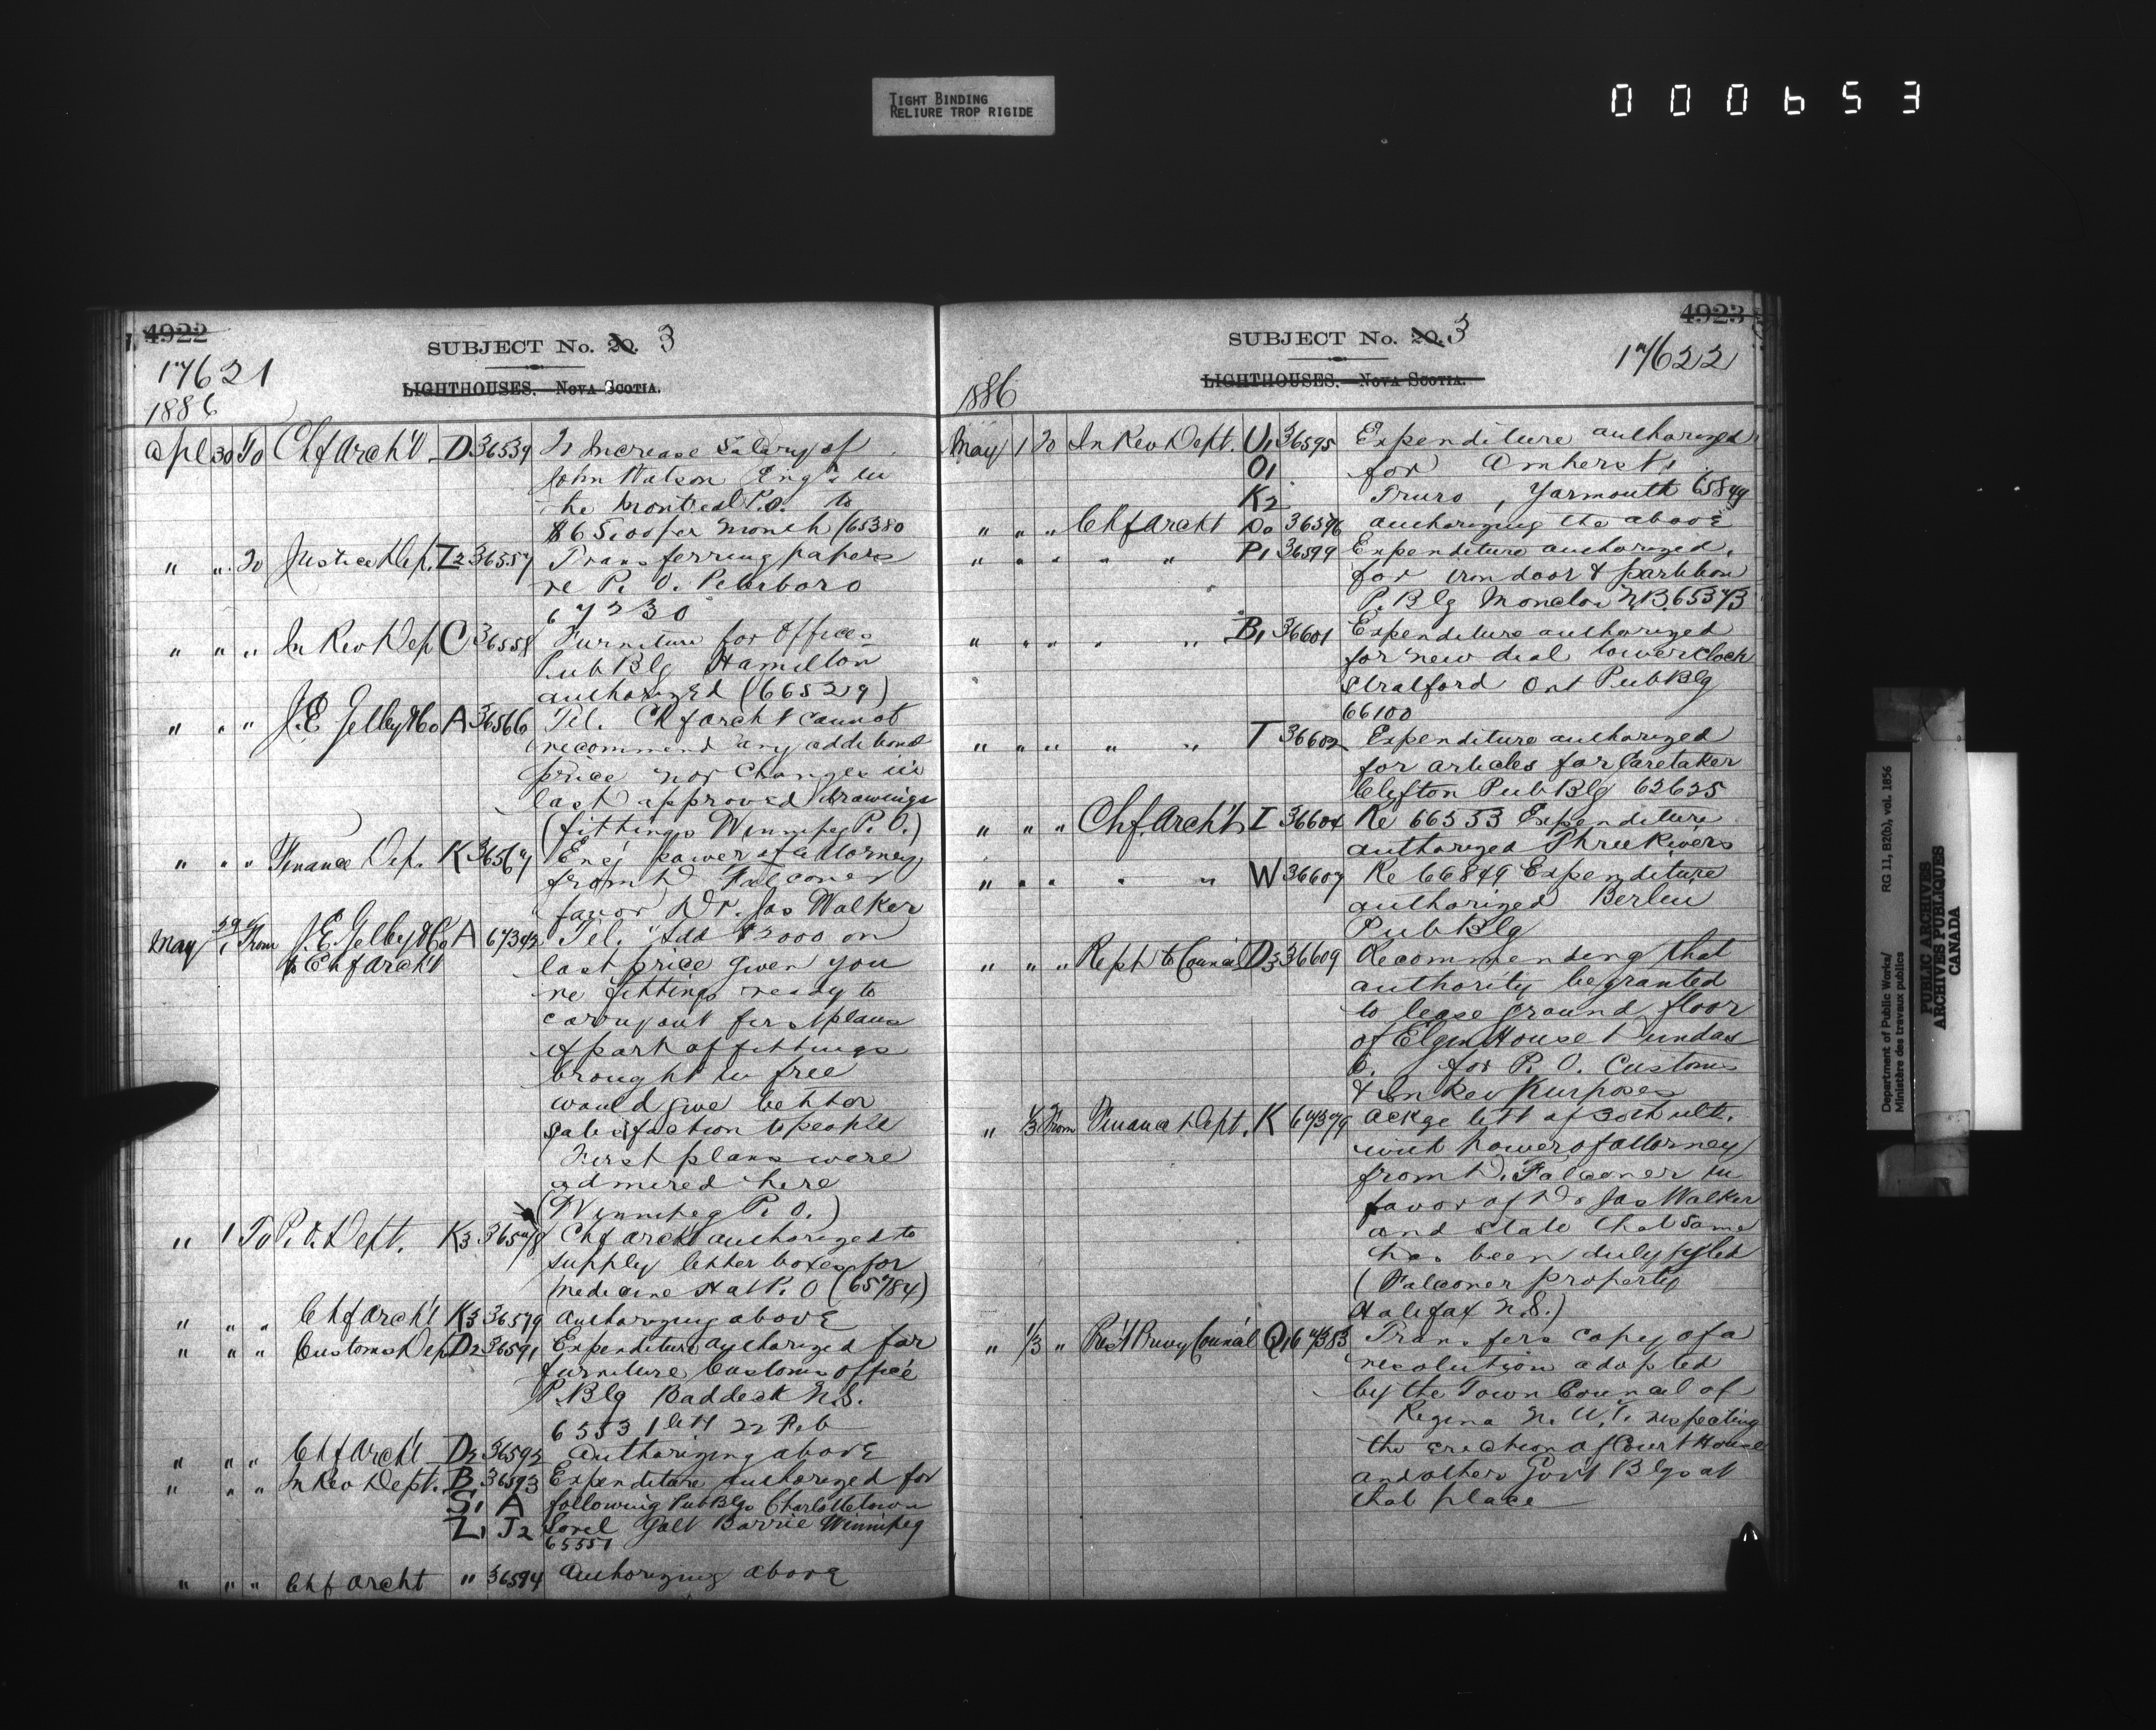 TIGHT BINDING
RELIURE TROP RIGIDE
000653
4922
SUBJECT No. 20. 3
17621
LIGHTHOUSES. NOVA SCOTIA.
1886
Apl 30 To Chf Arch't D 36539 To Increase Salary of
John Watson Eng'r in
the Montreal P.O. to
$65.00 per month (65380
" " To Justice Dep. Z2 36557 Transferring papers
re P.O. Peterboro
67230
" " " In Rev Dep C 36558 Furniture for Offices
Pub Blg Hamilton
authorized (66529)
" " " J.E. Gelley & Co A 36566 Tel. Chf Archt cannot
recommend any additional
price nor changes in
last approved drawings
(fittings Winnipeg P.O.)
" " " Finance Dep. K 36567 Enc'g power of attorney
from D Falconer
favor Dr. Jas Walker
May 29/1 From J.E. Gelley & Co A 67342 Tel. Add $2000 on
to Chf Arch't last price given you
re fittings ready to
carry out first plans
if part of fittings
brought in free
would give better
satisfaction to people
First plans were
admired here
(Winnipeg P.O.)
" 1 To P.O. Dept. K3 36578 Chf Archt authorized to
supply letter boxes for
Medicine Hat P.O (65784)
" " " Chf Arch't K3 36579 Authorizing above
" " " Customs Dep D2 36591 Expenditure authorized for
furniture Customs Office
P. Blg Baddeck N.S.
65531 lett 22 Feb
" " " Chf Arch't D2 36592 Authorizing above
" " " In Rev Dept. B, 36593 Expenditure authorized for
S, A following Pub Blgs Charlottetown
Z, J2 Sorel Galt Barrie Winnipeg
65551
" " " Chf Archt " 36594 Authorizing above
4923
SUBJECT No. 20. 3
17622
LIGHTHOUSES. NOVA SCOTIA.
1886
May 1 To In Rev Dept. U1 36595 Expenditure authorized
O1 for Amherst,
K2 Truro, Yarmouth 65849
" " " Chf Archt Do 36596 authorizing the above
" " " " " P1 36599 Expenditure authorized
for iron door & partition
P. Blg Moncton N.B. 65373
" " " " " B1 36601 Expenditure authorized
for new dial tower clock
Stratford Ont Pub Blg
66100
" " " " " T 36602 Expenditure authorized
for articles for Caretaker
Clifton Pub Blg 62625
" " " Chf. Arch't I 36604 Re 66553 Expenditure
authorized Three Rivers
" " " " " W 36607 Re 66849 Expenditure
authorized Berlin
Pub Blg
" " " Rept to Council D3 36609 Recommending that
authority be granted
to lease ground floor
of Elgin House Dundas
O. for P.O. Customs
& In Rev Purposes
" 1/3 From Finance Dept. K 67379 Ackge lett of 30th ulto.
with power of attorney
from D. Falconer in
favor of Dr Jas Walker
and state that same
has been duly fyled
(Falconer property
Halifax N.S.)
" 1/3 " Pres't Privy Council Q1 67383 Transfers copy of a
resolution adopted
by the Town Council of
Regina N.W.T. respecting
the erection of Court House
and other Gov't Blgs at
that place
Department of Public Works/ RG 11, B2(b), vol. 1856
Ministère des travaux publics
PUBLIC ARCHIVES
ARCHIVES PUBLIQUES
CANADA